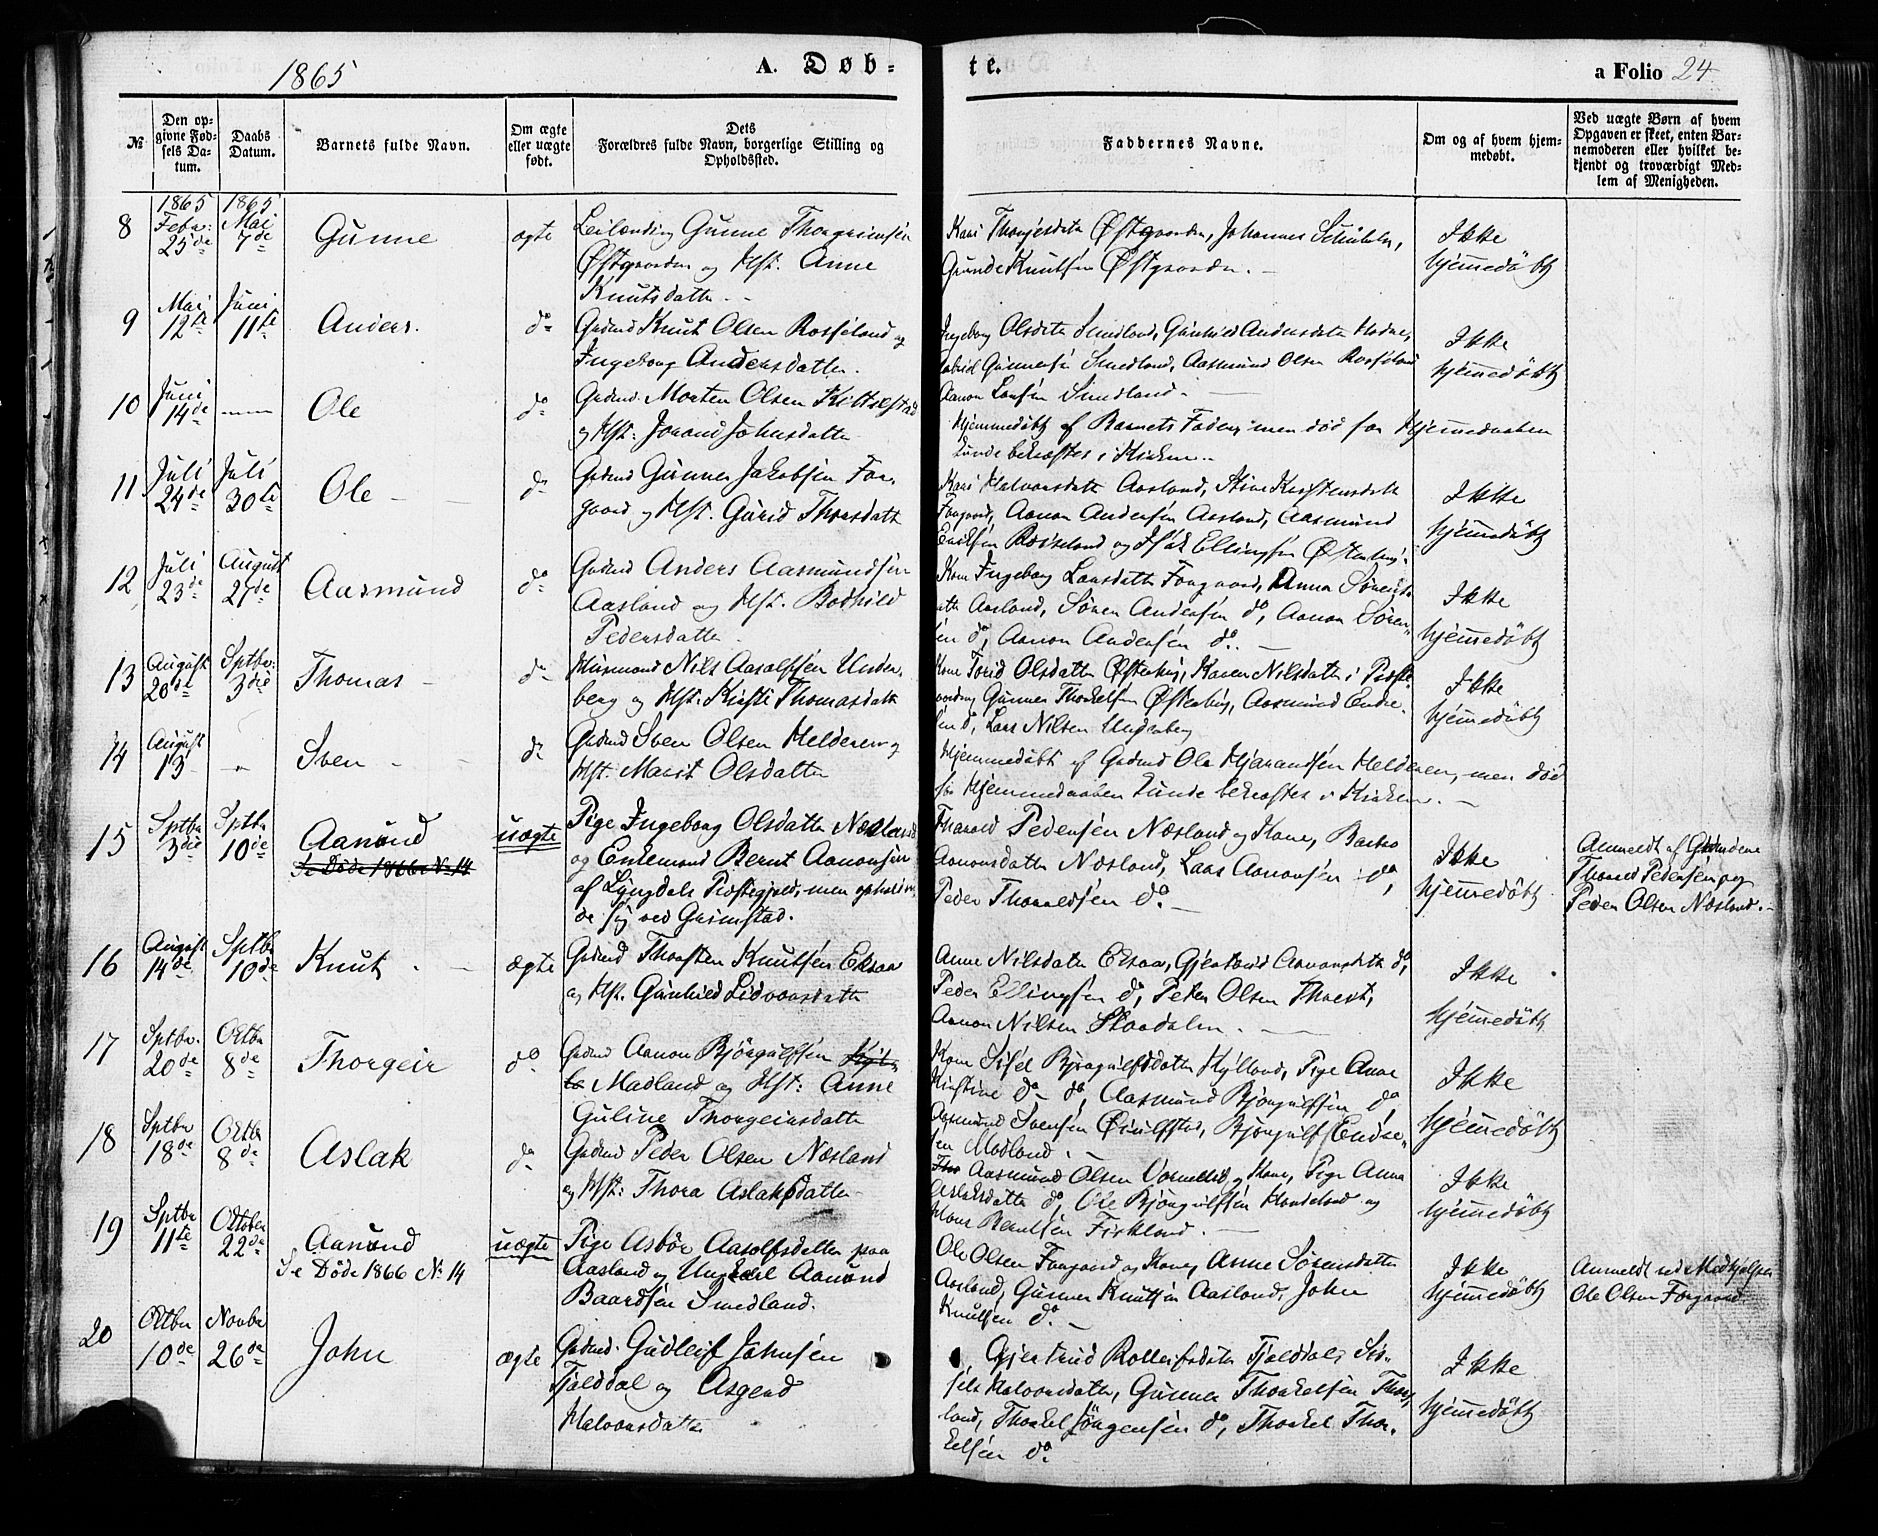 1865
A. Døb-
te.
a Folio 24
№
Den op-
givne Fød-
sels Da-
tum.
Daabs
Datum.
Barnets fulde Navn.
Om ægte
eller uægte
født.
Dets
Forældres fulde Navn, borgerlige Stilling og
Opholdssted.
Faddernes Navne.
Om og af hvem hjem-
medøbt.
Ved uægte Børn af hvem
Opgaven er skeet, enten Bar-
nemoderen eller hvilket be-
kjendt og troværdigt Med-
lem af Menigheden.
8
1865
Febr:
25de
1865
Mai
7de
Gunne
ægte
Leilænding Gunne Thorgrimsen
Østgaarden og Hst. Anne
Knutsdatter
Kari Østgaarden, Johannes
Gunde Knutsen Østgaarden.
Ikke
hjemmedøbt
9
Mai
12te
Juni
11te
Anders.
do
Gdmd Knut Olsen Rosseland og
Ingeborg Andersdatter.
Ingeborg Olsdtr Smedland, Gunhild Andersdatter
Gabriel Gunnersen Smedland, Aasmund Olsen Rosseland
Aanon Larsen Smedland.
Ikke
hjemmedøbt
10
Juni
14de
Ole
do
Gdmd. Morten Olsen
og Hst: Jorand Johnsdatter
Hjemmedøbt af Barnets Fader, men død før Hjemmedaaben
kunde bekræftes i Kirken.
11
Juli
24de
Juli
30te
Ole
do
Gdmd Gunner Jakobsen For-
gaard og Hst. Gurid Thorsdatter
Kari Halvorsdatter Aasland, Stine Kristensdatter
Forgaard, Aanon Andersen Aasland, Aasmund
Eriksen Rosseland og Isak Ellingsen
Ikke
hjemmedøbt
12
Juli
23de
August
27de
Aasmund
do
Gdmd Anders Aasmundsen
Aasland og Hst. Bodhild
Pedersdatter
Kone Ingeborg Larsdatter Forgaard, Anna Sørensd-
atter Aasland, Søren Andersen do, Aanon Søren-
sen do, Aanon Andersen do.
Ikke
hjemmedøbt
13
August
20de
Sptbr:
3die
Thomas
do
Husmand Nils Aasolfsen Under-
berg og Hst: Kirsti Thomasdatter
Kone Torid Olsdatter Østerhus, Karen Nilsdatter i Præste-
gaarden, Gunner Thorkelsen Østerhus, Aasmund Endre-
sen do, Lars Nilsen Underberg
Ikke
hjemmedøbt
14
August
13
Sven
do
Gdmd Sven Olsen Helderen og
Hst. Marit Olsdatter
Hjemmedøbt af Gdmd Ole Hjarandsen Helderen, men død
før Hjemmedaaben kunde bekræftes i Kirken.
15
Sptbr
3die
Sptbr
10de
Aanund
Se Døde 1866 No 14
uægte
Pige Ingeborg Olsdatter Næsland
og Enkemand Bernt Aanonsen
af Lyngdals Præstegjeld, men opholden-
de sig ved Grimstad.
Tharald Pedersen Næsland og Kone, Barbro
Aanonsdatter Næsland, Lars Aanonsen do,
Peder Tharaldsen do
Ikke
hjemmedøbt
Anmeldt af Gdmdene
Tharald Pedersen og
Peder Olsen Næsland.
16
August
14de
Sptbr
10de
Knut
ægte
Gdmd Thorsten Knutsen Eksaa
og Hst. Gunhild Lidvorsdatter
Anne Nilsdatter Eksaa, Gjertrud Aanonsdatter do,
Peder Ellingsen do, Peder Olsen
Aanon Nilsen Skaadalen.
Ikke
hjemmedøbt
17
Sptbr.
20de
Octbr
8de
Thorgeir
do
Gdmd Aanon Bjørgulfsen
Madland og Hst: Anne
Guline Thorgeirsdatter
Kone Sisel Bjørgulfsdatter Hylland, Pige Anne
Kirstine do do, Aasmund Bjørgulfsen do
Aasmund Svensen Øiulfstad, Bjørgulf Endre-
sen Madland.
Ikke
hjemmedøbt
18
Sptbr
18de
Octbr
8de
Aslak
do
Gdmd Peder Olsen Næsland
og Hst: Thora Aslaksdatter
Aasmund Olsen og Kone, Pige Anna
Aslaksdatter do, Ole Bjørgulfsen og
Hans Berntsen
Ikke
hjemmedøbt
19
Sptbr
11te
Oktober
22de
Aanund
Se Døde 1866 No 14
uægte
Pige Asbør Aasolfsdatter paa
Aasland og Ungkarl Aanund
Baardsen Smedland.
Ole Olsen Forgaard og Kone, Anne Sørensdatter
Aasland, Gunner Knutsen Aasland, John
Knutsen do.
Ikke
hjemmedøbt
Anmeldt ved Medhjelper
Ole Olsen Forgaard
20
Octbr
10de
Novbr
26de
John
ægte
Gdmd. Gudleif Johnsen
Fjalddal og Asgerd
Halvorsdatter
Gjertrud Rolleifsdatter Fjalddal, Sis-
sel Halvorsdatter, Gunner Thorkelsen
land, Thorkel Jørgensen do, Thorkel Thor-
kelsen do.
Ikke
hjemmedøbt